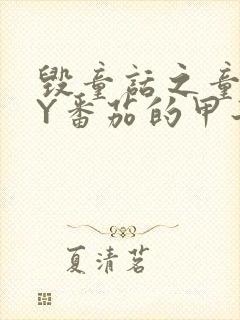 毁童话之童
Y番茄的甲
夏清茗